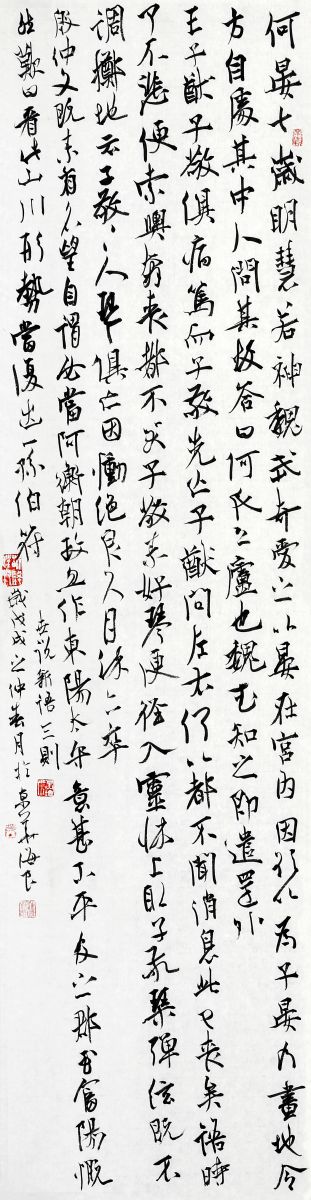 何晏七歲明慧若神魏武奇愛之以晏在宮內因欲以為子晏乃畫地令
方自處其中人問其故答曰何氏之廬也魏武知之即遣還外
王子猷子敬俱病篤而子敬先亡子猷問左右何以都不聞消息此已喪矣語時
了不悲便索輿奔喪都不哭子敬素好琴便徑入靈床上取子敬琴彈弦既不
調擲地云子敬子敬人琴俱亡因慟絕良久月餘亦卒
殷仲文既素有名望自謂必當阿衡朝政忽作東陽太守意甚不平及之郡至富陽慨
然歎曰看此山川形勢當復出一孫伯符
世說新語三則
歲戊戌之仲春月於京華海